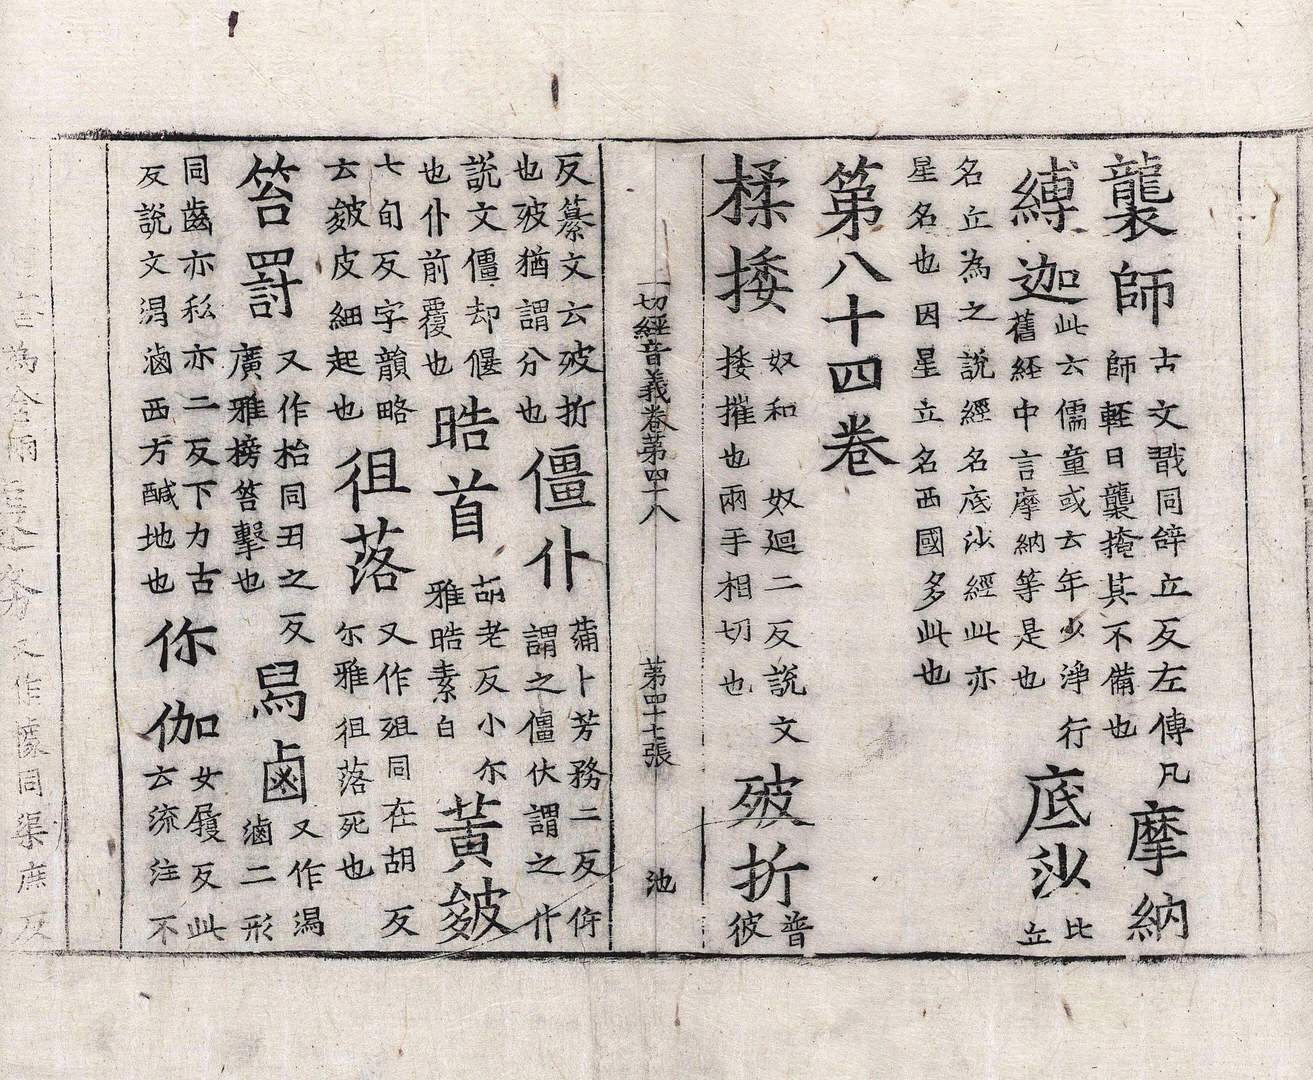 襲師
古文戬同辝立反左傳凡
師輊曰襲掩其不備也
摩納
縛迦
此云儒童或云年少淨行
舊經中言摩納等是也
底沙
比
立
名立為之說經名底沙經此亦
星名也因星立名西國多此也
第八十四卷
揉捼
奴和奴廻二反說文
捼摧也兩手相切也
破折
普
彼
一切經音義卷第四十八 第四十七張 池
反纂文云破折
也破猶謂分也
僵仆
蒲卜芳務二反
謂之僵伏謂之仆
說文僵却偃
也仆前覆也
晧首
胡老反小尒
雅晧素白
黃皴
七旬反字韻略
云皴皮細起也
徂落
又作殂同在胡反
尒雅徂落死也
笞罰
又作枱同丑之反
廣雅搒笞擊也
舄鹵
又作潟
滷二形
同齒亦私亦二反下力古
反說文潟滷西方鹹地也
你伽
女履反此
云流注不